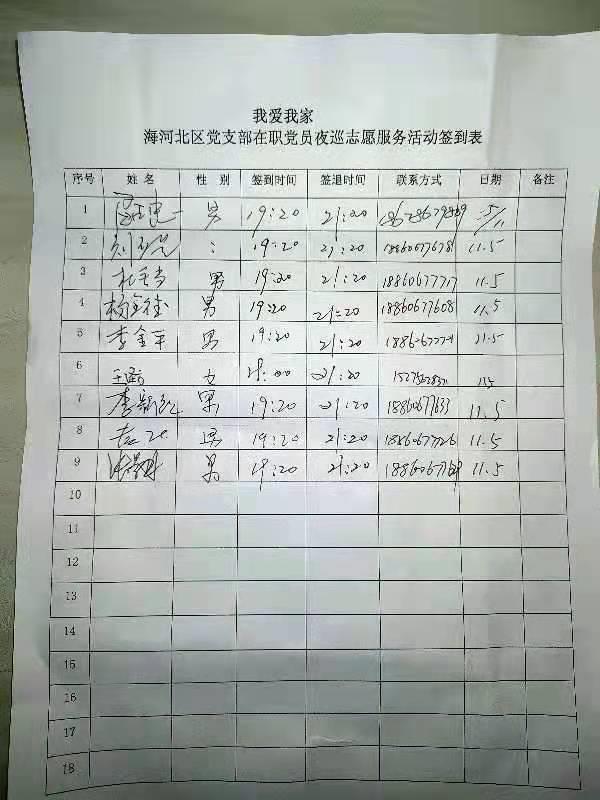 我爱我家
海河北区党支部在职党员夜巡志愿服务活动签到表
序号 姓名 性别 签到时间 签退时间 联系方式 日期 备注
1 男 19:20 21:20
2 19:20 21:20 11.5
3 男 19:20 21:20 18860677717 11.5
4 杨金銮 男 19:20 21:20 18860677608 11.5
5 李金平 男 19:20 21:20 11.5
6 女 21:20
7 李新红 男 19:20 21:20 18860677633 11.5
8 男 19:20 21:20 18860677726 11.5
9 男 19:20 21:20 11.5
10
11
12
13
14
15
16
17
18